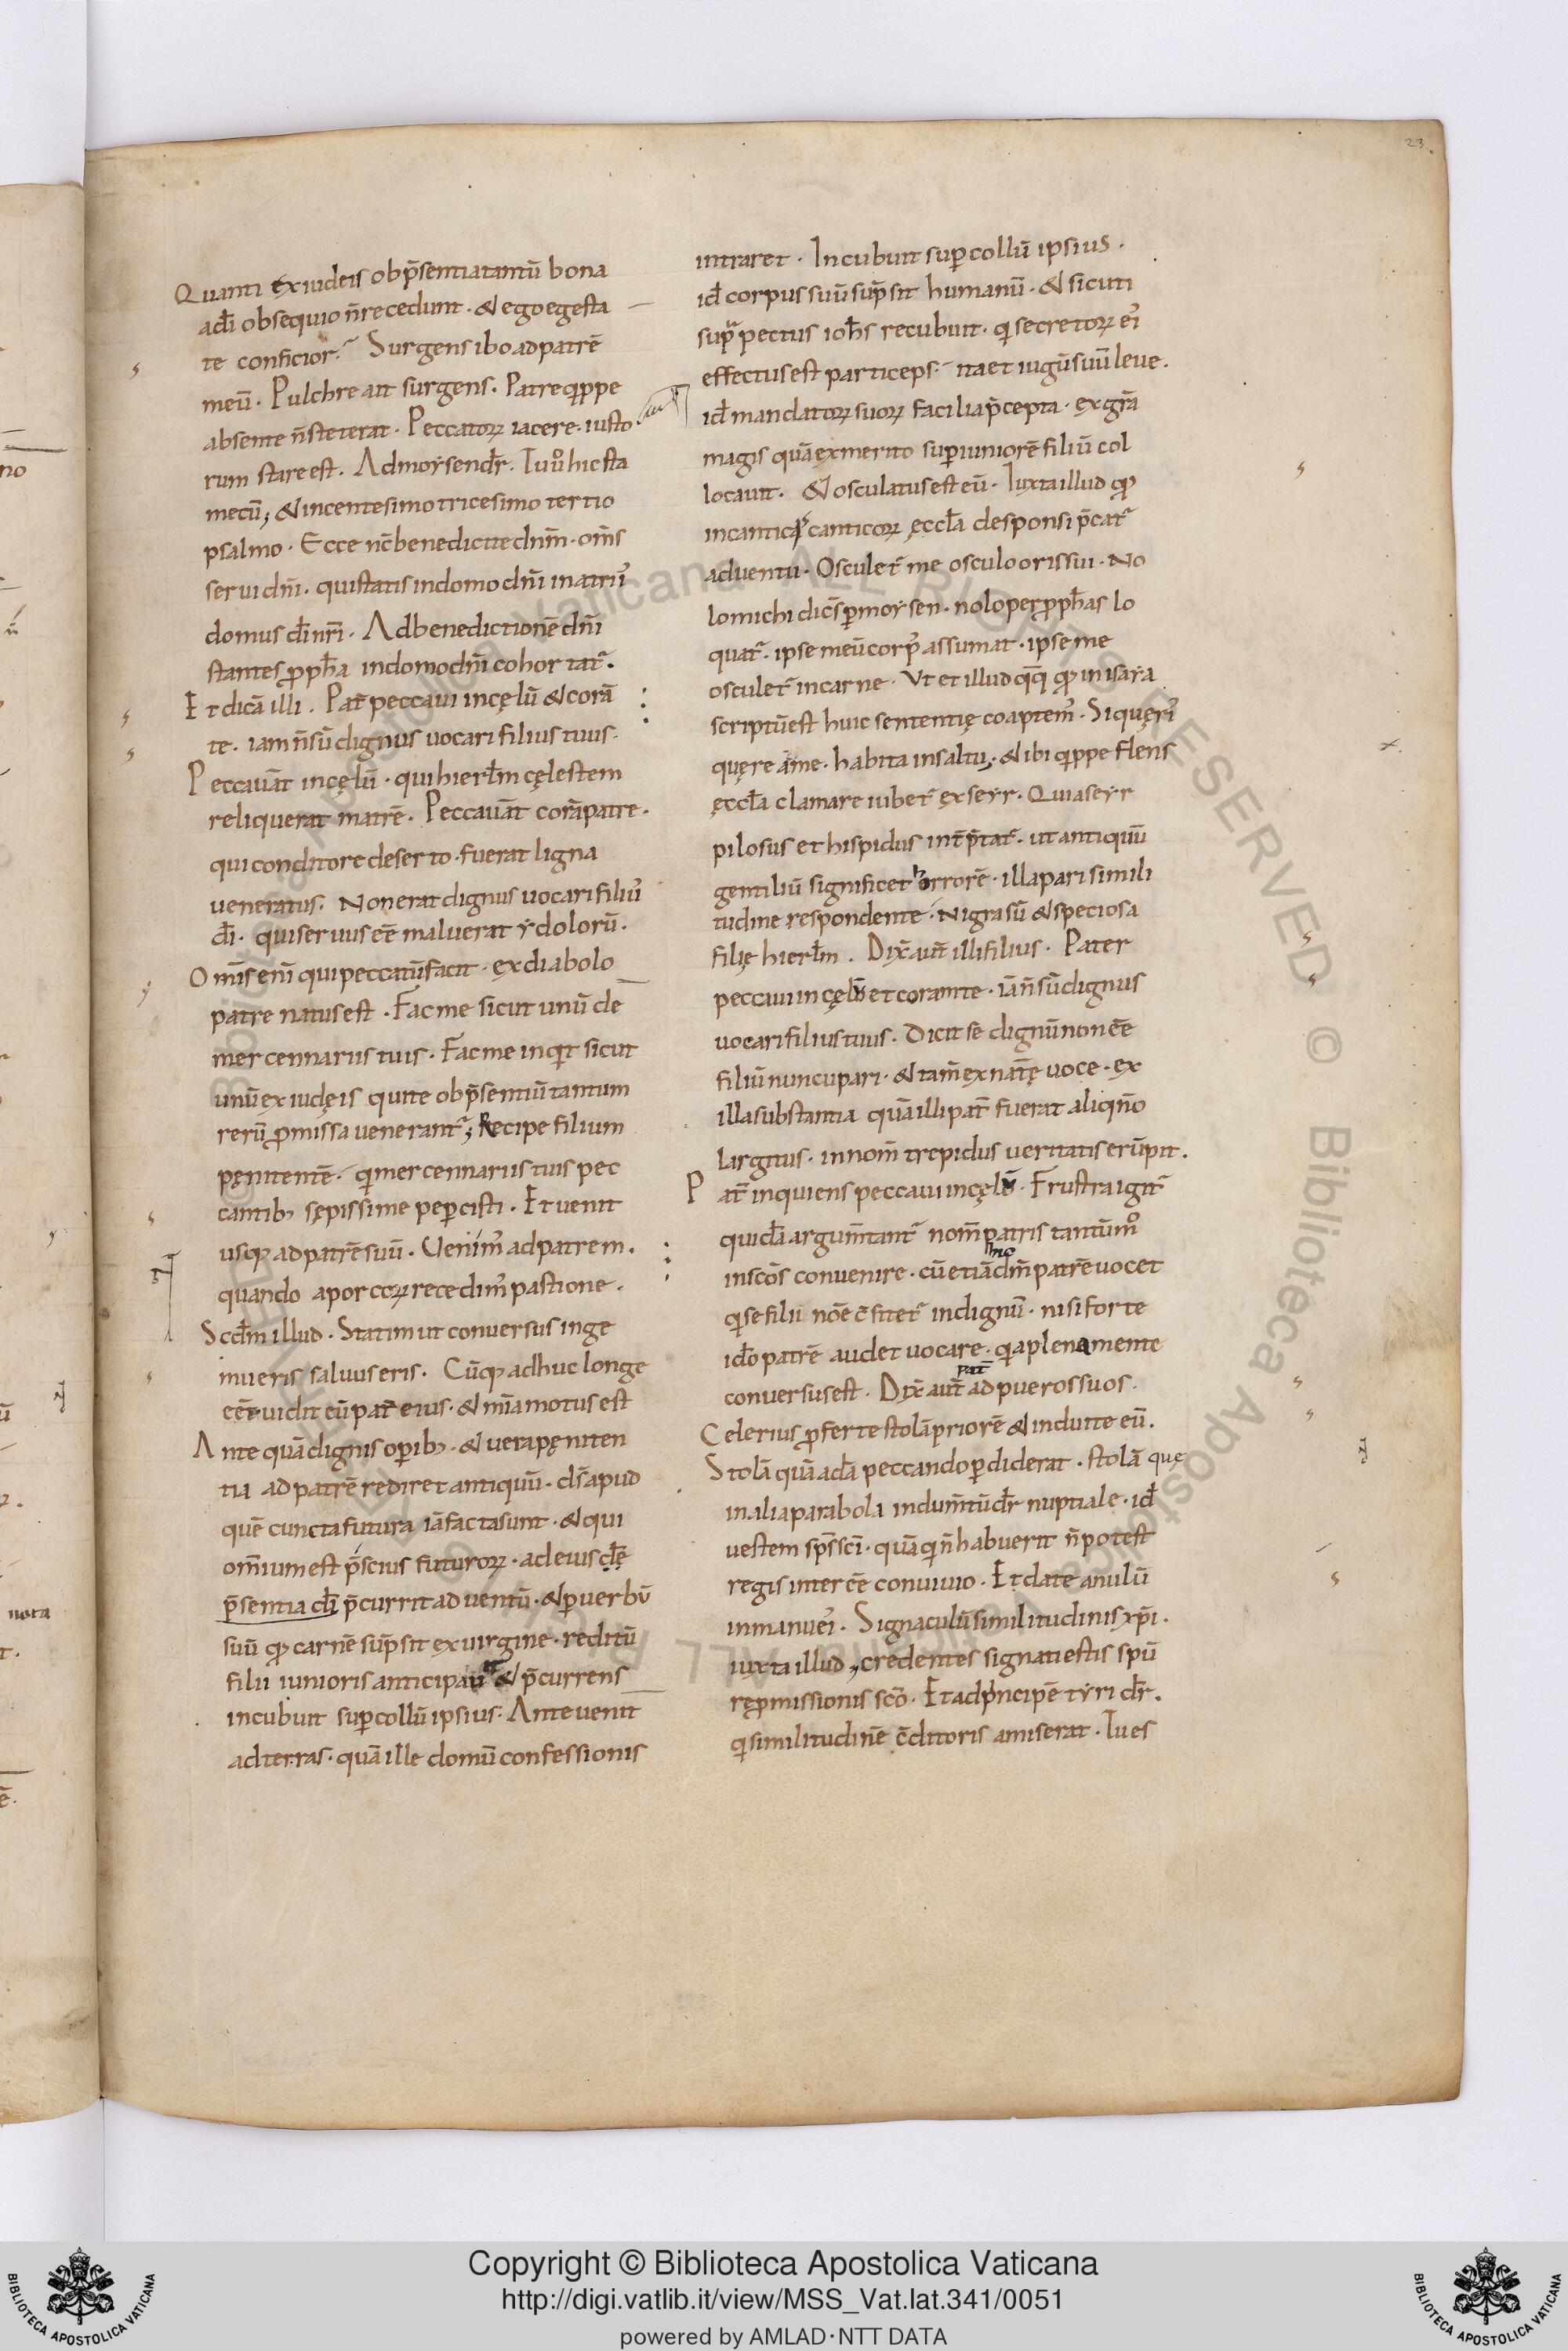 23
Quanti ex iudeis ob p̄sentia tantū bona
a dī obsequio n̄ recedunt · & ego egesta
te conficior. Surgens ibo ad patrē
meū · Pulchre ait surgens · Patre qippe
absente n̄ steterat · Peccatoꝝ iacere · iusto
rum stare est · Ad moysen dr̄ · Tu ů hic sta
mecū; & in centesimo tricesimo tertio
psalmo · Ecce nc̄ benedicite dnm̄ · om̄s
serui dn̄i · qui statis in domo dn̄i in atriis
domus dī nr̄i · Ad benedictionē dn̄i
stantes ꝓpha in domo dn̄i cohortatr ·
Et dicā illi · Pat̄ peccaui in cęlū & corā
te · iam n̄ sū dignus uocari filius tuus ·
Peccauāt in cęlū · qui hierlm̄ cęlestem
reliquerat matrē · Peccauāt corā patre ·
qui conditore deserto · fuerat ligna
ueneratus · Non erat dignus uocari filius
dī · qui seruus eē maluerat ydolorū ·
Omis̄ eni qui peccatū facit · ex diabolo
patre natus est · Fac me sicut unū de
mercennariis tuis · Fac me inqit sicut
unū ex iudęis qui te ob p̄sentiū tantum
rerū ꝓmissa uenerantr; Recipe filium
pęnitentē · qi mercennariis tuis pec
cantibꝫ sępissime pepcisti · Et uenit
usqꝫ ad patrē suū · Uenim᾽ ad patrem ·
quando a porcoꝝ recedim᾽ pastione ·
Scdm̄ illud · Statim ut conuersus inge
mueris saluus eris · Cūqꝫ adhuc longe
eēt uidit eū pat̄ eius · & mīa motus est
Ante quā dignis opibꝫ · & uera pęniten
tia ad patrē rediret antiquū · ds̄ apud
quē cuncta futura iā facta sunt · & qui
om̄ium est p̄scius futuroꝝ · ad eius
p̄sentia dī p̄currit aduentū · & p uerbū
suū qꝫ carnē sūpsit ex uirgine · reditū
filii iunioris anticipauit & p̄currens
incubuit sup collū ipsius · Ante uenit
ad terras · quā ille domū confessionis
intraret · Incubuit sup collū ipsius ·
id̄ corpus suū sup̄sit humanū · & sicuti
supra pectus ioh̄s recubuit · qi secretoꝝ ei᾽
effectus est particeps · ita et iugū suū leue ·
id̄ mandatoꝝ suoꝝ facilia p̄cepta · ex gr̄a
magis quā ex merito sup iuniorē filiū col
locauit · & osculatus est eū · Iuxta illud qꝫ
in cantico canticoꝝ ęccla de sponsi p̄catr
aduentu · Osculetr me osculo oris sui · No
lo michi dic̄s p moysen · nolo pę ꝓphas lo
quatr · ipse meū corp᾽ assumat · ipse me
osculetr in carne · Ut et illud qq̄ qꝫ in isaya
scriptū est huic sententię coaptem᾽ · Si quęris
quęre a me · habita in saltu; & ibi qippe flens
ęccla clamare iubetr ex seyr · Quia seyr
pilosus et hispidus int̄p̄tatr · ut antiquū
gentiliū significet horrorē · illa pari simili
tudine respondente · Nigra sū & speciosa
filię hierlm̄ · Dix̄ aut̄ illi filius · Pater
peccaui in cęlū et coram te · iā n̄ sū dignus
uocari filius tuus · Dicit se dignū non eē
filiū nuncupari · & tam̄ ex natę uoce · ex
illa substantia quā illi pat̄ fuerat aliqn̄o
largitus · in nom̄ trepidus ueritatis erūpit ·
Pat̄ inquiens peccaui in cęlū · Frustra igitr
quidā argum̄tantr nom̄ patris tantūmo
in scōs conuenire · cū etiā hic dm̄ patrē uocet
qi se filii nōe c̄fitetr indignū · nisi forte
ido patrē audet uocare · qia plena mente
conuersus est · Dix̄ aut̄ pat̄ ad pueros suos ·
Celerius ꝓferte stolā priorē & induite eū ·
Stolā quā adā peccando pdiderat · stolā quę
in alia parabola indum̄tū dr̄ nuptiale · id̄
uestem sps̄ sci · quā qi n̄ habuerit n̄ potest
regis inter eē conuiuio · Et date anulū
in manu ei᾽ · Signaculū similitudinis xp̄i ·
iuxta illud, credentes signati estis spū
reꝓmissionis scō · Et ad pncipē tyri dr̄ ·
qi similitudinē c̄ditoris amiserat · Tu es
no
nota
Copyright © Biblioteca Apostolica Vaticana
http://digi.vatlib.it/view/MSS_Vat.lat.341/0051
powered by AMLAD·NTT DATA
BIBLIOTECA APOSTOLICA VATICANA
BIBLIOTECA APOSTOLICA VATICANA